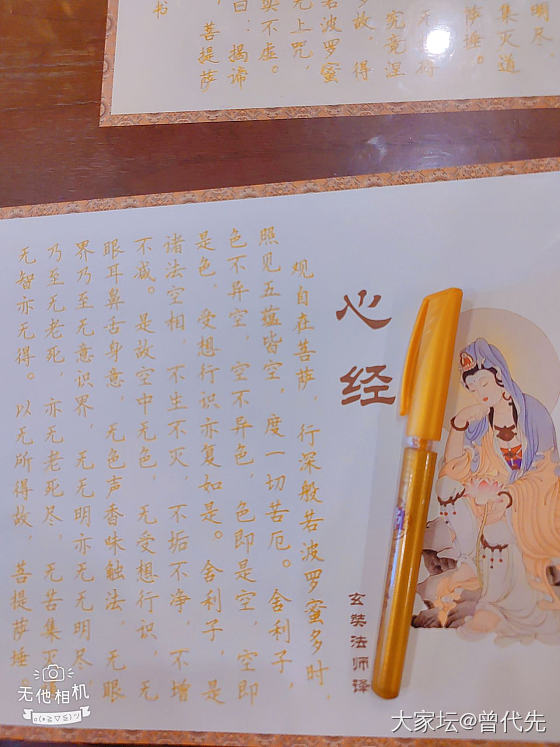 明尽，
集灭道
萨埵。
究竟涅
多故，得
若波罗蜜
无上咒，
实不虚。
曰：揭谛
菩提萨
书
心经
玄奘法师译
观自在菩萨，行深般若波罗蜜多时，
照见五蕴皆空，度一切苦厄。舍利子，
色不异空，空不异色，色即是空，空即
是色，受想行识亦复如是。舍利子，是
诸法空相，不生不灭，不垢不净，不增
不减。是故空中无色，无受想行识，无
眼耳鼻舌身意，无色声香味触法，无眼
界乃至无意识界，无无明亦无无明尽，
乃至无老死，亦无老死尽，无苦集灭
无智亦无得。以无所得故，菩提萨埵。
无他相机
大家坛@曾代先